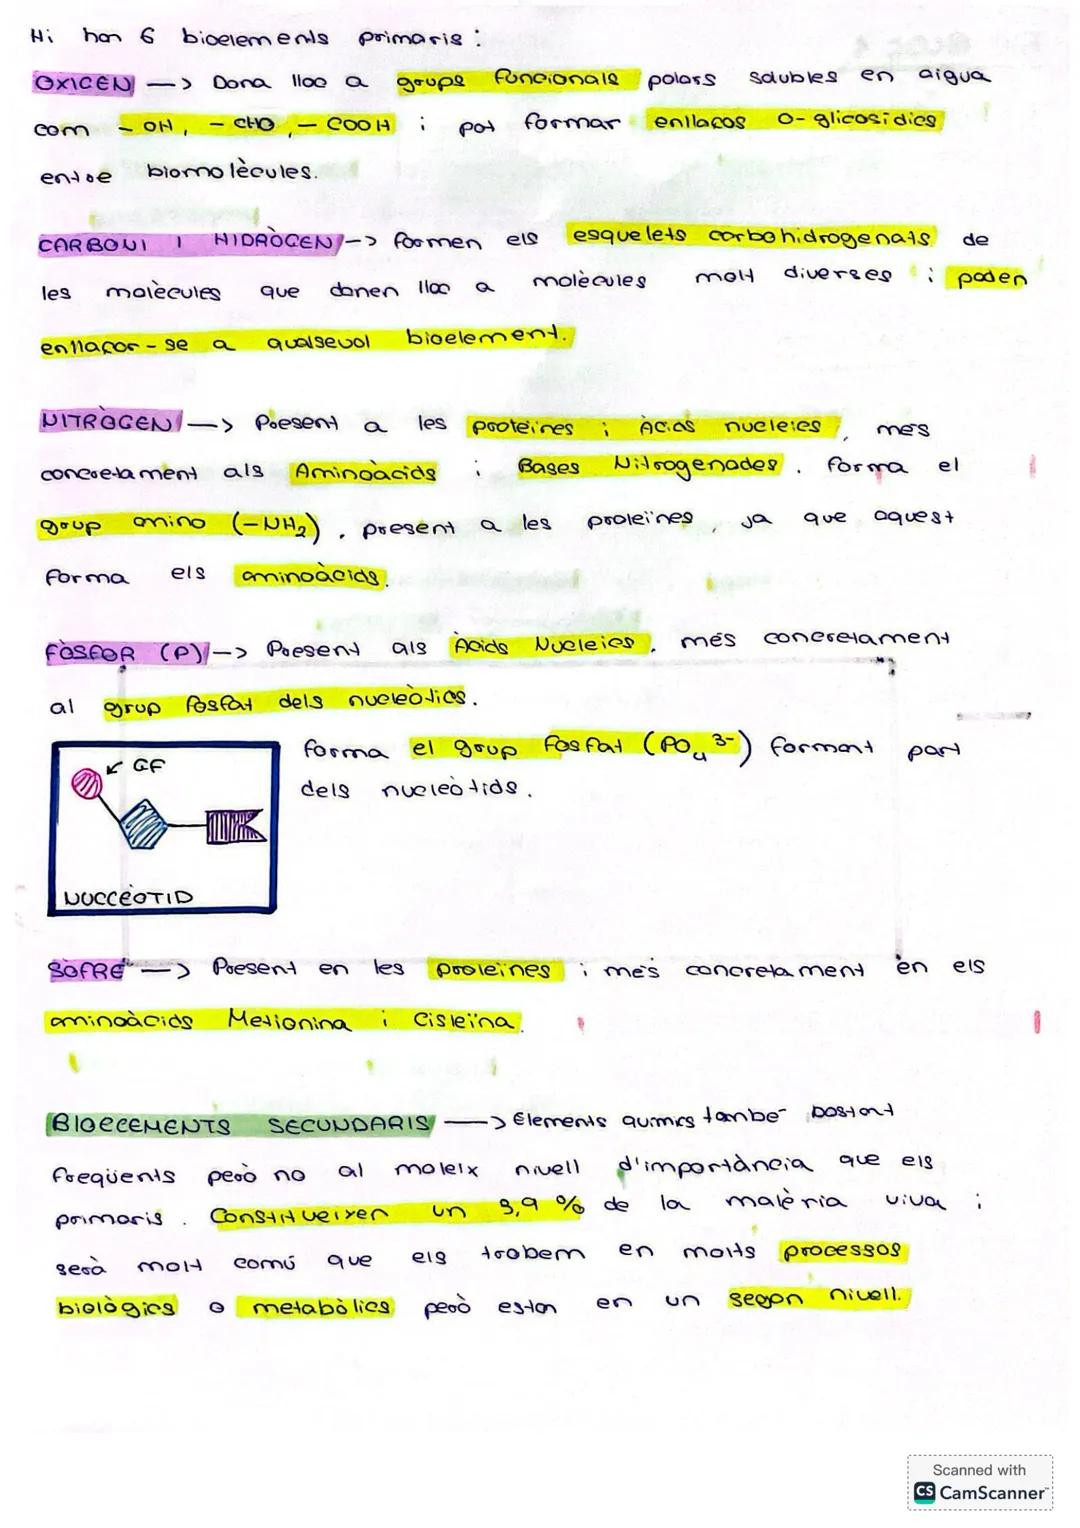 Hi han 6 bioelements primaris:
OXIGEN —> Dona lloc a grups funcionals polars solubles en aigua
com -OH, -CHO, -COOH i pot formar enllaços O-glicosídics
entre biomolècules.
CARBONI I HIDRÒGEN —> formen els esquelets carbohidrogenats de
les molècules que donen lloc a molècules molt diverses i poden
enllaçar-se a qualsevol bioelement.
NITRÒGEN —> Present a les proteïnes i Àcids nucleics, més
concretament als Aminoàcids i Bases Nitrogenades. forma el
grup amino (-NH₂), present a les proteïnes, ja que aquest
forma els aminoàcids.
FÒSFOR (P) —> Present als Àcids Nucleics, més concretament
al grup fosfat dels nucleòtics.
forma el grup fosfat (PO₄³⁻) formant part
dels nucleòtids.
GF
NUCLEÒTID
SOFRE —> Present en les proteïnes i més concretament en els
aminoàcids Metionina i Cisteïna.
BIOELEMENTS SECUNDARIS —> Elements químics també bastant
freqüents però no al mateix nivell d'importància que els
primaris. Constitueixen un 3,9 % de la matèria viva i
serà molt comú que els trobem en molts processos
biològics o metabòlics però estan en un segon nivell.
Scanned with
CS CamScanner